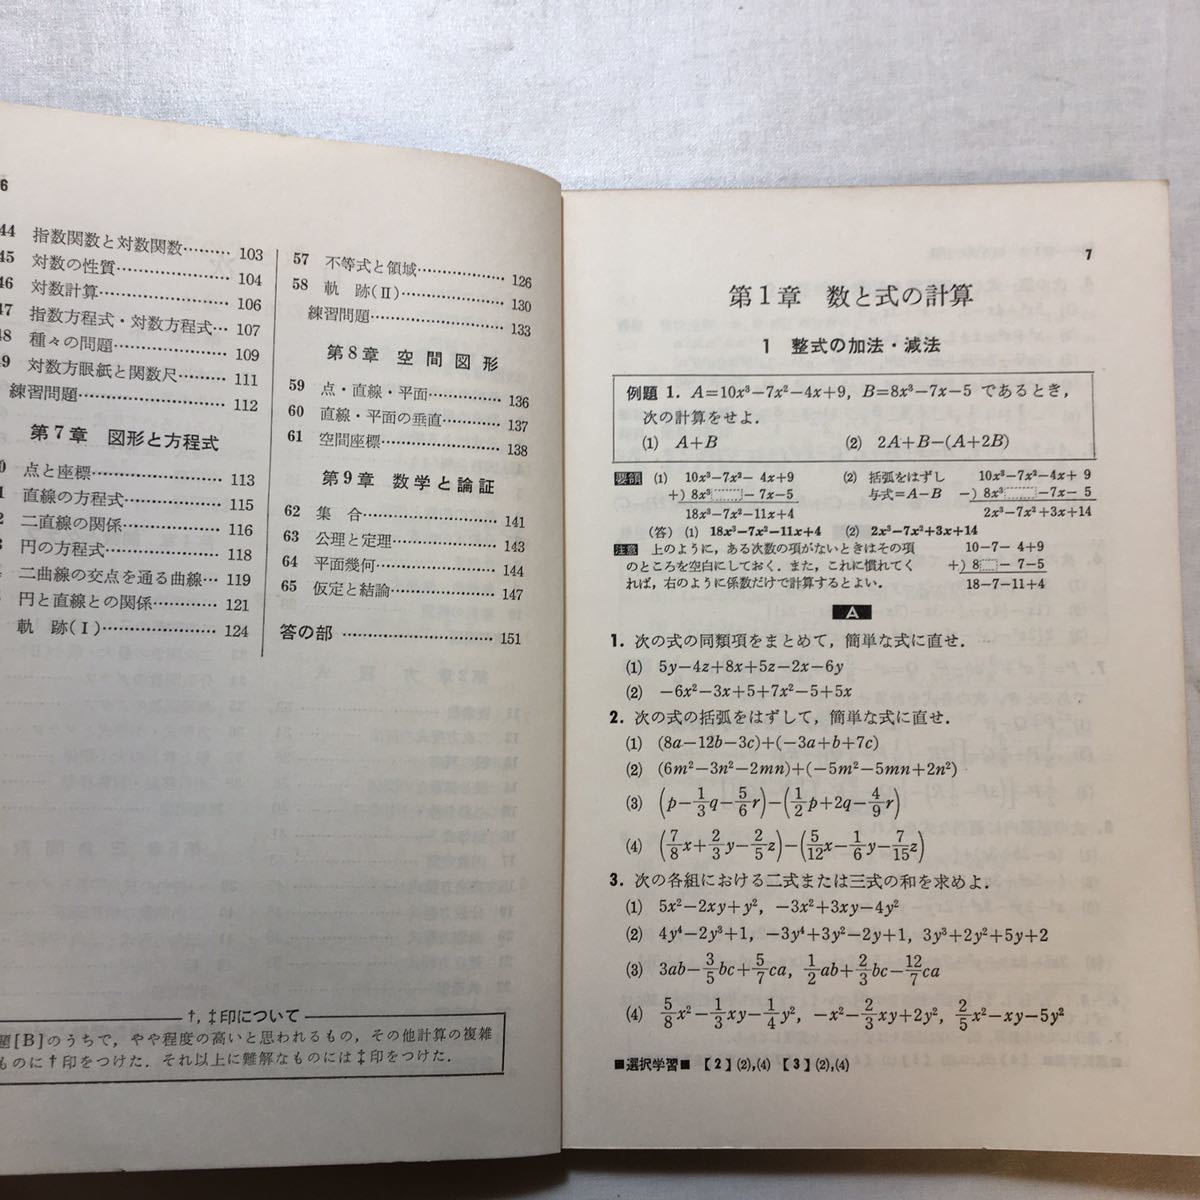 6
44 指数関数と対数関数………103
45 対数の性質……………104
46 対数計算………………106
47 指数方程式・対数方程式…107
48 種々の問題……………109
49 対数方眼紙と関数尺……111
練習問題…………………112
第7章 図形と方程式
点と座標………………113
直線の方程式…………115
二直線の関係…………116
円の方程式……………118
二曲線の交点を通る曲線…119
円と直線との関係………121
軌 跡(Ⅰ)……………124
57 不等式と領域……………126
58 軌 跡(Ⅱ)………………130
練習問題…………………133
第8章 空間図形
59 点・直線・平面…………136
60 直線・平面の垂直………137
61 空間座標………………138
第9章 数学と論証
62 集 合…………………141
63 公理と定理……………143
64 平面幾何………………144
65 仮定と結論……………147
答の部 …………………151
†, ‡印について
題[B]のうちで，やや程度の高いと思われるもの，その他計算の複雑
ものに†印をつけた．それ以上に難解なものには‡印をつけた．
7
第1章 数と式の計算
1 整式の加法・減法
例題 1. A=10x³−7x²−4x+9, B=8x³−7x−5 であるとき，
次の計算をせよ．
(1) A+B (2) 2A+B−(A+2B)
要領 (1) 10x³−7x²− 4x+9 (2) 括弧をはずし 10x³−7x²−4x+ 9
+) 8x³ − 7x−5 与式=A−B −) 8x³ −7x− 5
18x³−7x²−11x+4 2x³−7x²+3x+14
(答) (1) 18x³−7x²−11x+4 (2) 2x³−7x²+3x+14
注意 上のように，ある次数の項がないときはその項 10−7− 4+9
のところを空白にしておく．また，これに慣れてく +) 8 − 7−5
れば，右のように係数だけで計算するとよい． 18−7−11+4
A
1. 次の式の同類項をまとめて，簡単な式に直せ．
(1) 5y−4z+8x+5z−2x−6y
(2) −6x²−3x+5+7x²−5+5x
2. 次の式の括弧をはずして，簡単な式に直せ．
(1) (8a−12b−3c)+(−3a+b+7c)
(2) (6m²−3n²−2mn)+(−5m²−5mn+2n²)
(3) (p−1/3q−5/6r)−(1/2p+2q−4/9r)
(4) (7/8x+2/3y−2/5z)−(5/12x−1/6y−7/15z)
3. 次の各組における二式または三式の和を求めよ．
(1) 5x²−2xy+y², −3x²+3xy−4y²
(2) 4y⁴−2y³+1, −3y⁴+3y²−2y+1, 3y³+2y²+5y+2
(3) 3ab−3/5bc+5/7ca, 1/2ab+2/3bc−12/7ca
(4) 5/8x²−1/3xy−1/4y², −x²−2/3xy+2y², 2/5x²−xy−5y²
■選択学習■ 【2】(2),(4) 【3】(2),(4)